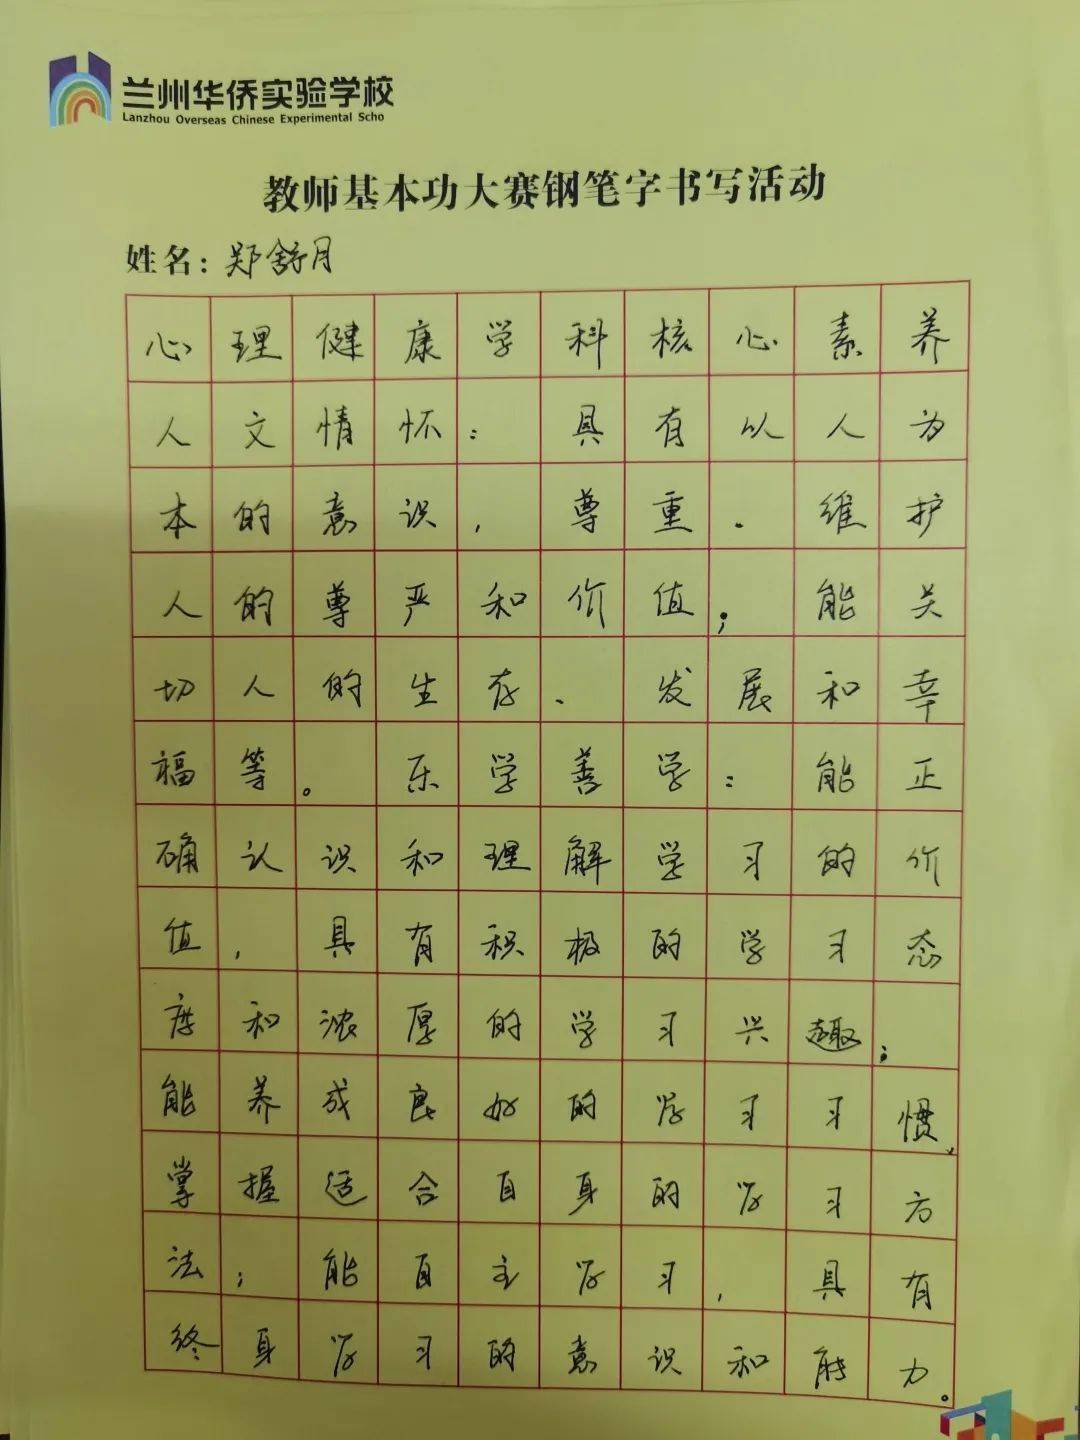 兰州华侨实验学校
Lanzhou Overseas Chinese Experimental Scho
教师基本功大赛钢笔字书写活动
姓名：郑舒月
心理健康学科核心素养
人文情怀：具有以人为
本的意识，尊重、维护
人的尊严和价值；能关
切人的生存、发展和幸
福等。乐学善学：能正
确认识和理解学习的价
值，具有积极的学习态
度和浓厚的学习兴趣；
能养成良好的学习习惯、
掌握适合自身的学习方
法；能自主学习，具有
终身学习的意识和能力。